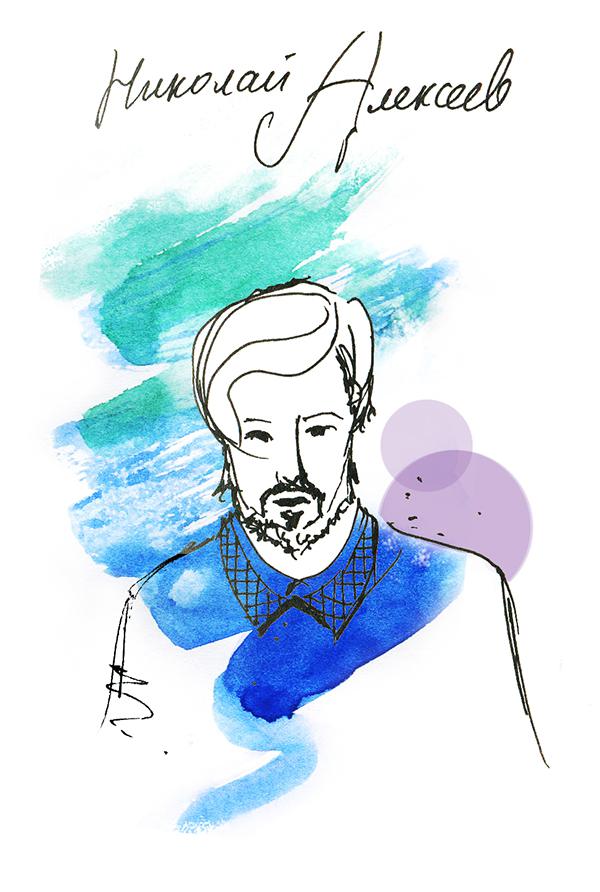 Николай Алексеев